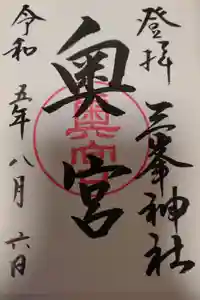 登拝
三峯神社
奥宮
令和五年八月六日